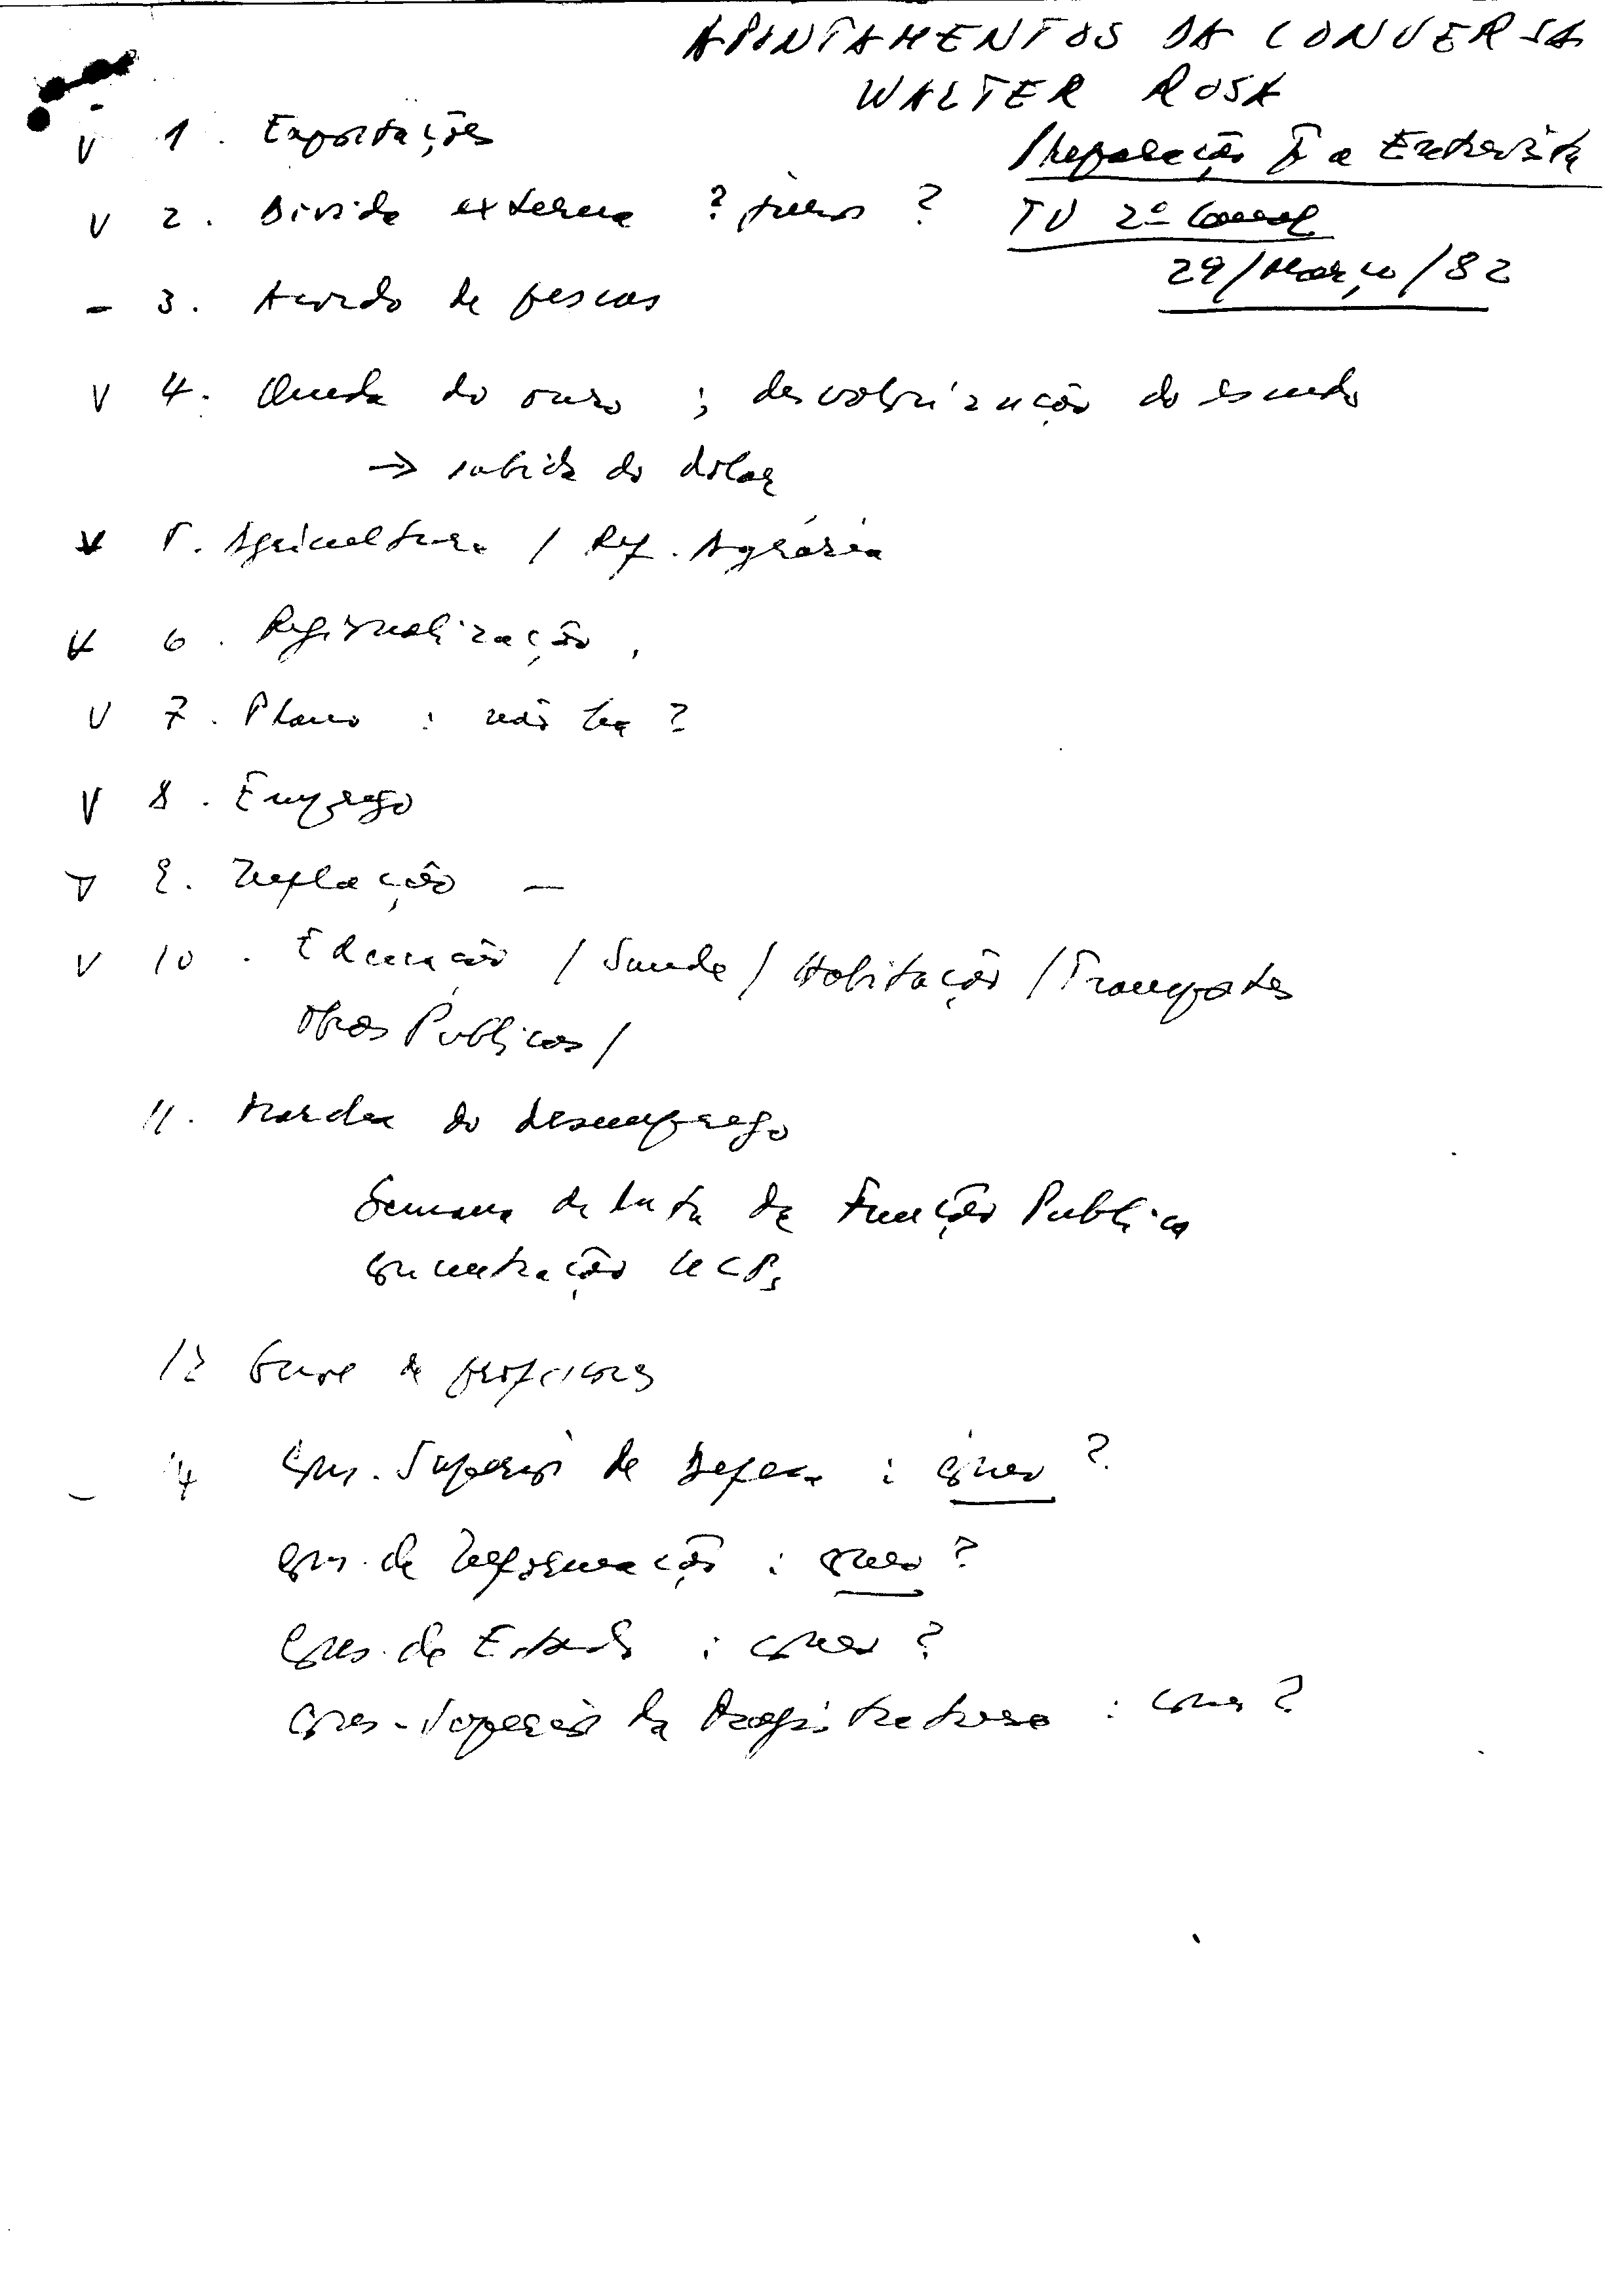 APONTAMENTOS DA CONVERSA
WALTER ROSA
Preparação P a Entrevista
TV 2º Canal
29/Março/82
V 1. Exportações
V 2. Divida externa ? juros ?
- 3. Acordo de pescas
V 4. Queda do ouro ; desvalorização do escudo
→ subida do dolar
V 5. Agricultura / Ref. Agrária
V 6. Regionalização
V 7. Plano : não há ?
V 8. Emprego
V 9. Inflação —
V 10. Educação / Saude / Habitação / Transportes
Obras Publicas /
11. Marcha do desemprego
Semana de luta da Função Publica
Concentração UCPs
13 Greve de professores
- 14 Cons. Superior de Defesa : como ?
Cons. de Informação : como ?
Cons. de Estado : como ?
Cons. Superior da Magistratura : como ?